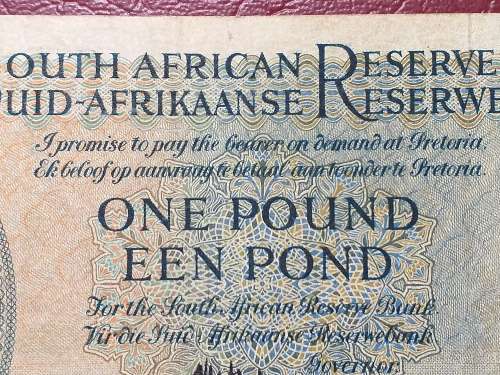 OUTH AFRICAN RESERVE
UID-AFRIKAANSE RESERWE
I promise to pay the bearer on demand at Pretoria.
Ek beloof op aanvraag te betaal aan toonder te Pretoria.
ONE POUND
EEN POND
For the South African Reserve Bank
Vir die Suid-Afrikaanse Reserwebank
Governor.